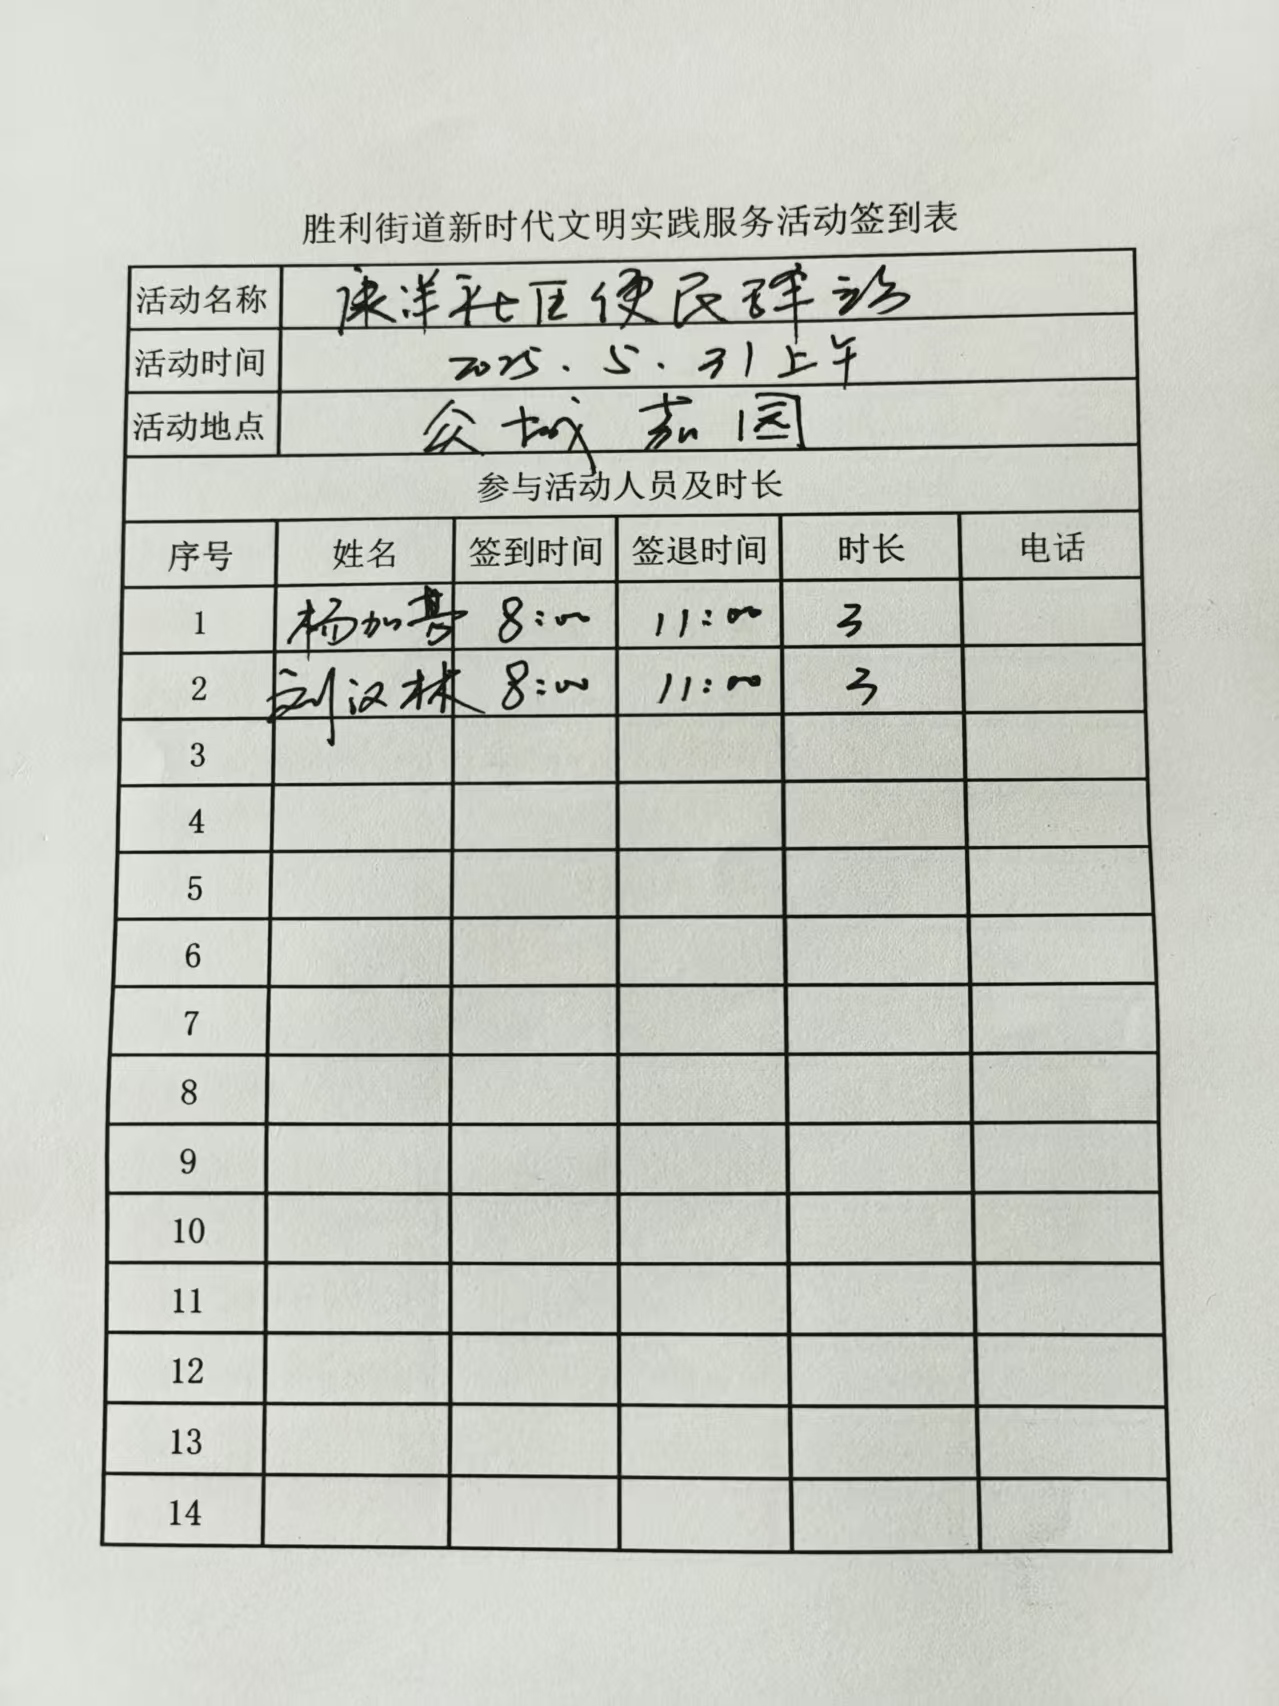 胜利街道新时代文明实践服务活动签到表
活动名称 康洋社区便民驿站
活动时间 2025.5.31上午
活动地点 众城嘉园
参与活动人员及时长
序号 姓名 签到时间 签退时间 时长 电话
1 杨加 8:00 11:00 3
2 刘汉林 8:00 11:00 3
3
4
5
6
7
8
9
10
11
12
13
14